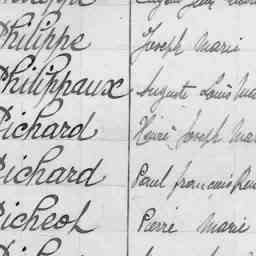 Philippe Joseph Marie
Philippaux Auguste Louis
Pichard Henri Joseph
Pichard Paul François
Picheol Pierre Marie